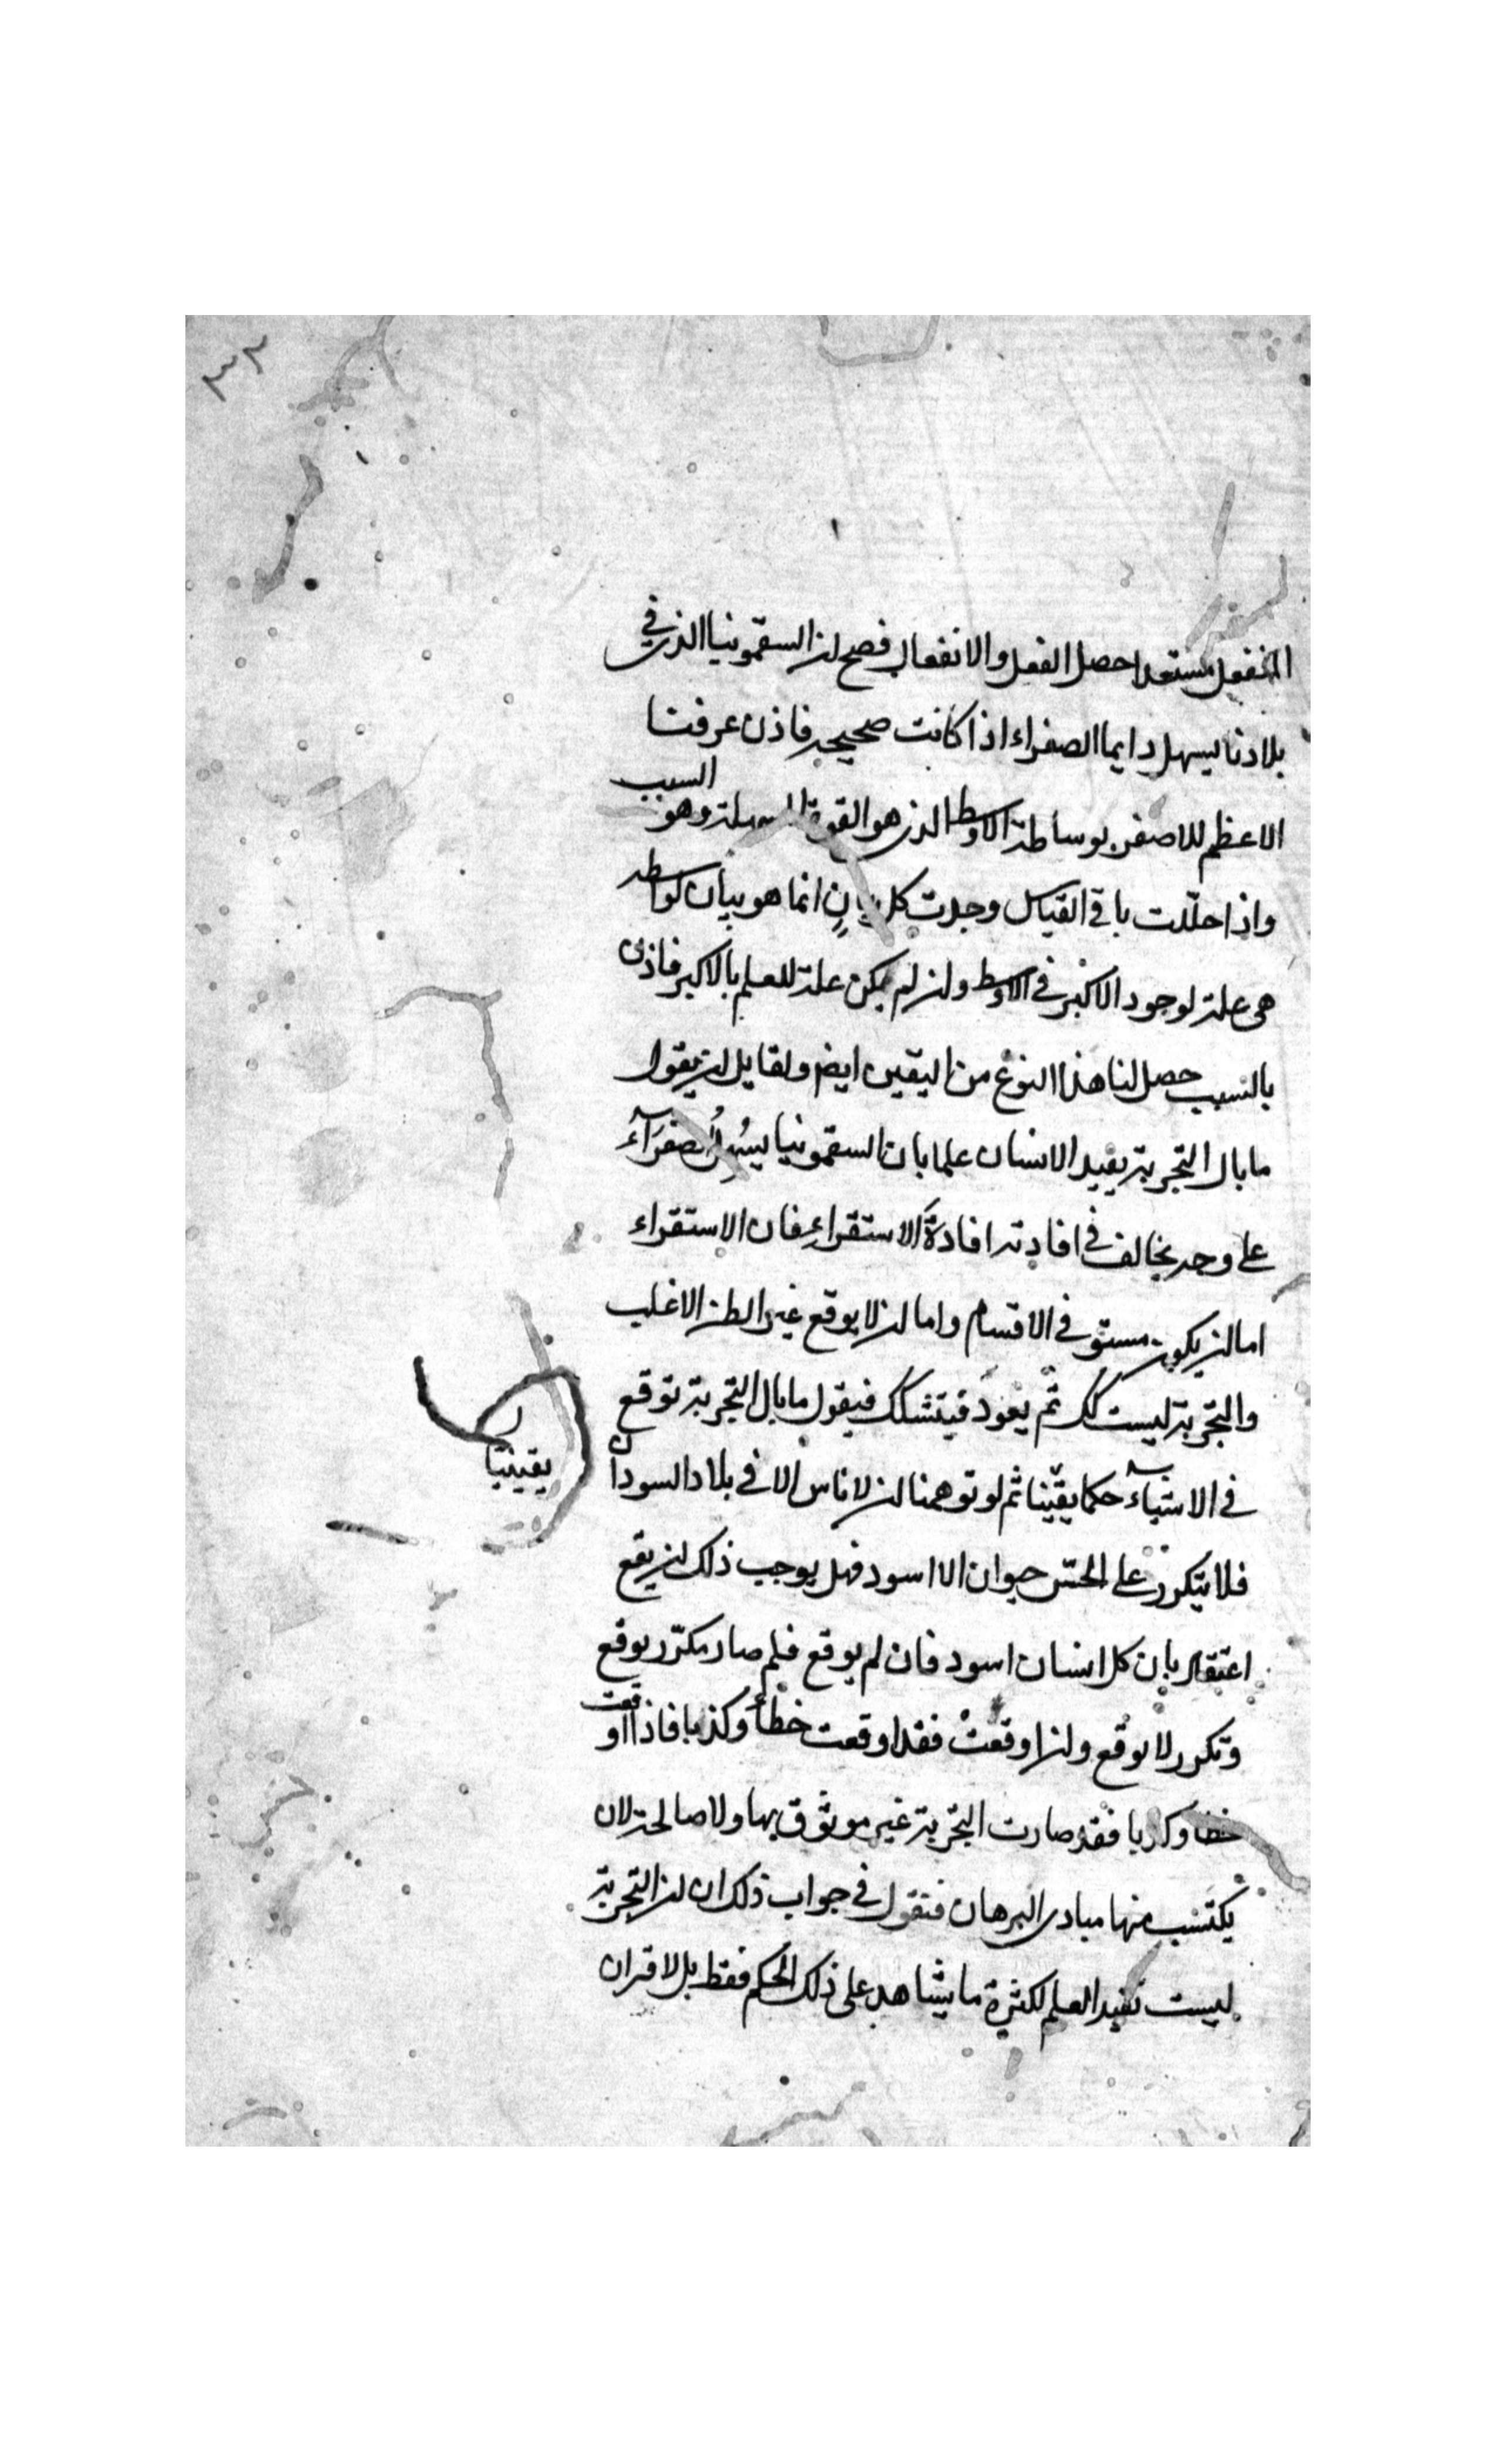 ٣٣
المنفعل مستعدا حصل الفعل والانفعال فصح ان السقمونيا الذى في
بلادنا يسهل دايما الصفراء اذا كانت صحيحه فاذن عرفنا
الاعظم للاصغر بوساطة الاوسط الذى هو القوة المسهلة وهو السبب
واذا حللت باقى القياس وجدت كل بيانٍ انما هو بيان بواسطه
هى علة لوجود الاكبر في الاوسط وان لم يكن علة للعلم بالاكبر فاذن
بالسبب حصل لنا هذا النوع من اليقين ايضا ولقايل ان يقول
ما بال التجربة يفيد الانسان علما بان السقمونيا يسُهلُ الصفرَآء
على وجه يخالف في افادته افادةَ الاستقراءِ فان الاستقراء
اما ان يكون مستوفى الاقسام واما ان لا يوقع غير الظن الاغلب
والتجربة ليست كك ثم يعود فيتشكك فيقول ما بال التجربة توقع
في الاشيآء حكما يقينا ثم لو توهمنا ان لا ناس الا في بلاد السودان
يقينيا
فلا يتكرر على الحسّ حيوان الا اسود فهل يوجب ذلك ان يقع
اعتقاد بان كل انسان اسود فان لم يوقع فلم صار مكرّر يوقع
وتكرر لا يوقع وان اوقعتْ فقد اوقعت خطأ وكذبا فاذا اوقعت
خطا وكذبا فقد صارت التجربة غير موثوق بها ولا صالحة لان
يكتسب منها مبادى البرهان فنقول في جواب ذلك ان ان التجربة
ليست تفيد العلم لكثرة ما يشاهد على ذلك الحكم فقط بل لاقران